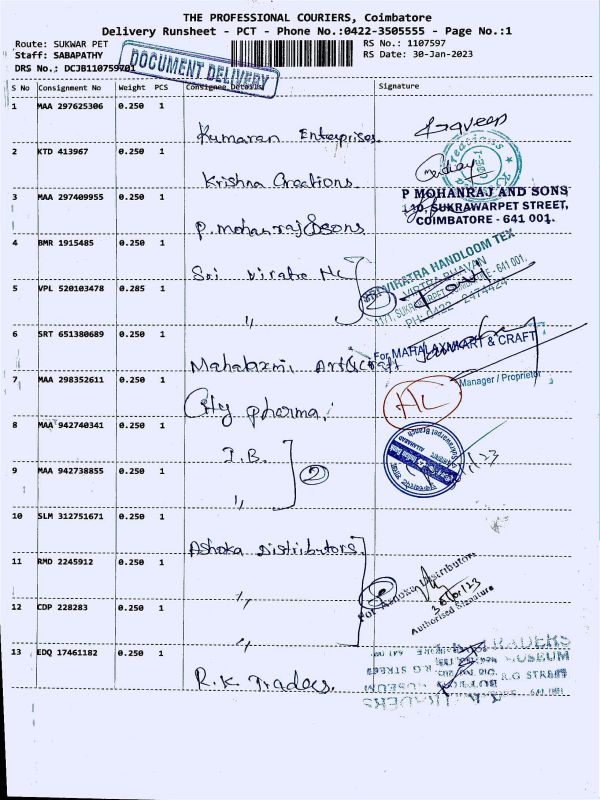 THE PROFESSIONAL COURIERS, Coimbatore
Delivery Runsheet - PCT - Phone No.:0422-3505555 - Page No.:1
Route: SUKWAR PET
RS No.: 1107597
Staff: SABAPATHY
RS Date: 30-Jan-2023
DRS No.: DCJB110759701
DOCUMENT DELIVERY
S No Consignment No Weight PCS Consignee Details Signature
1 MAA 297625306 0.250 1
Kumaran Enterprises
2 KTD 413967 0.250 1
Krishna Creations
3 MAA 297409955 0.250 1
P.mohanraj & sons
P MOHANRAJ AND SONS
110, SUKRAWARPET STREET,
COIMBATORE - 641 001.
4 BMR 1915485 0.250 1
Sri Viratra HL
SRI VIRATRA HANDLOOM TEX
5 VPL 520103478 0.285 1
" 2
PH: 0422 - 2474424
6 SRT 651380689 0.250 1
Mahalaxmi Art & Craft
For MAHALAXMI ART & CRAFT
Manager / Proprietor
7 MAA 298352611 0.250 1
City pharma
HL
8 MAA 942740341 0.250 1
I.B.
9 MAA 942738855 0.250 1
" 2
10 SLM 312751671 0.250 1
Ashoka Distributors
11 RMD 2245912 0.250 1
"
For Ashoka Distributors
Authorised Signature
12 CDP 228283 0.250 1
"
13 EDQ 17461182 0.250 1
R.K Traders